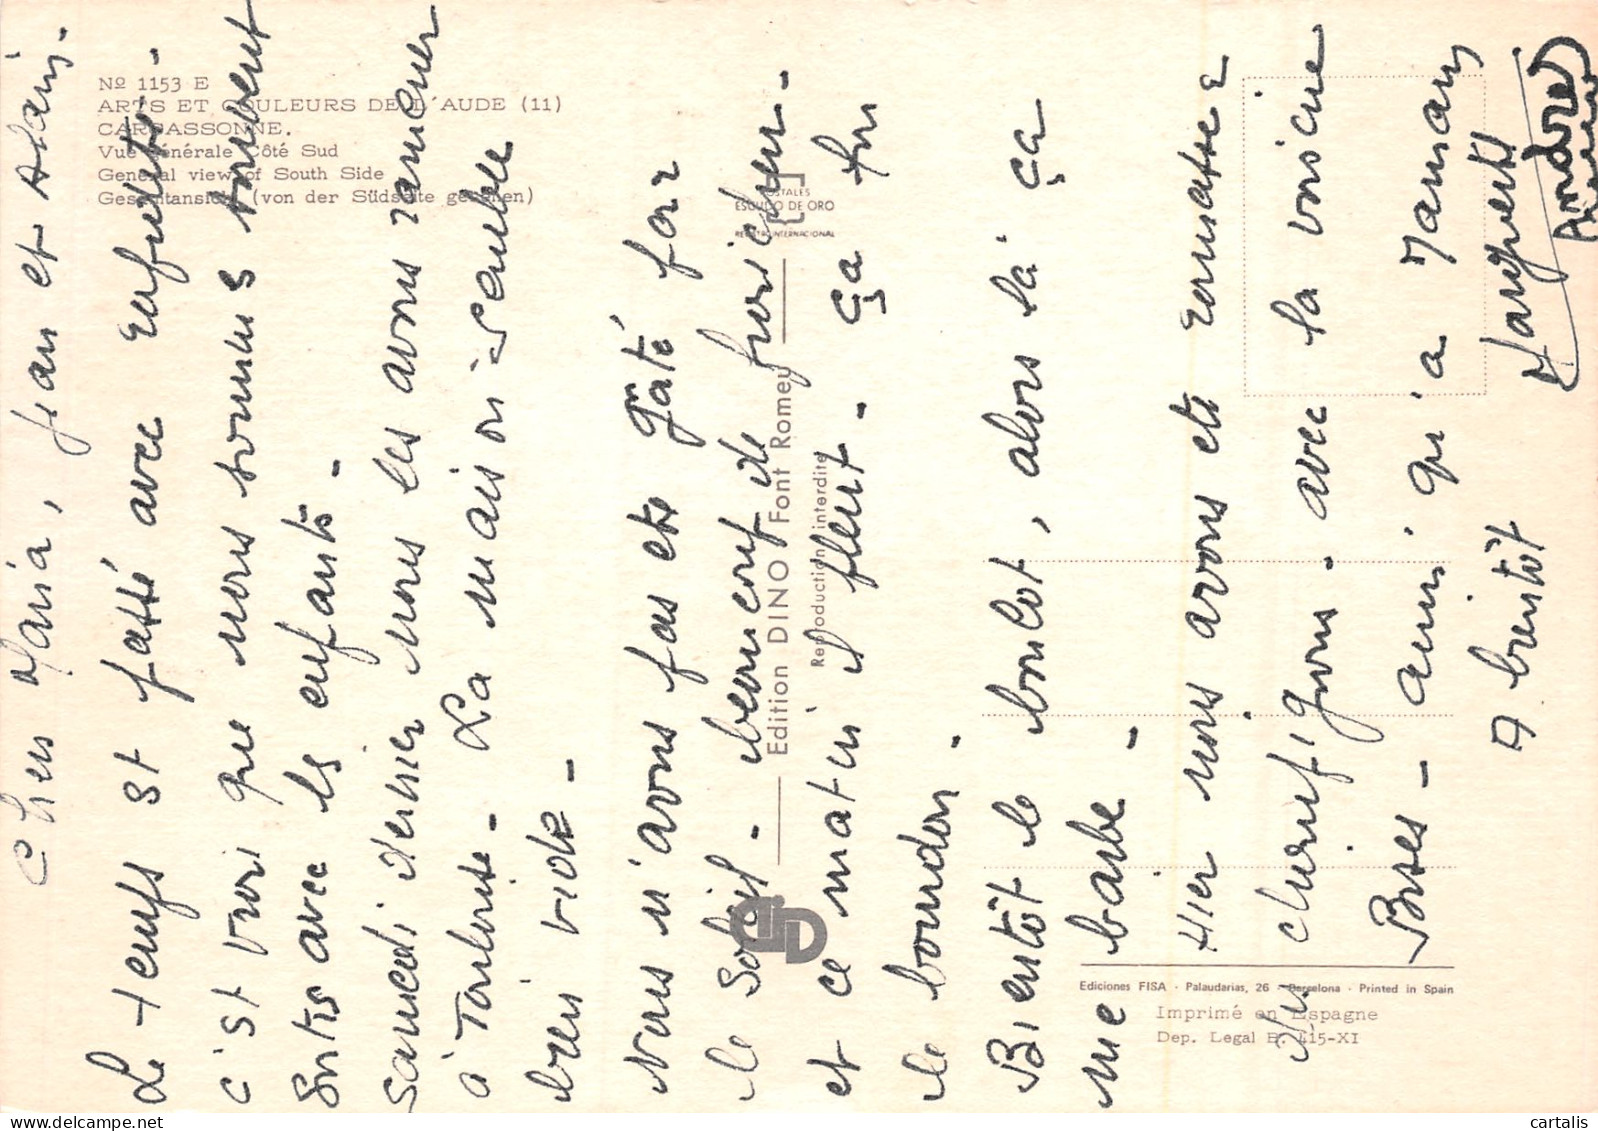 Nº 1153 E
ARTS ET COULEURS DE L'AUDE (11)
CARCASSONNE.
Vue Générale Côté Sud
General view of South Side
Gesamtansicht (von der Südseite gesehen)
POSTALES
ESCUDO DE ORO
REGISTRO INTERNACIONAL
Edition DINO Font Romeu
Reproduction interdite
Ediciones FISA - Palaudarias, 26 - Barcelona - Printed in Spain
Imprimé en Espagne
Dep. Legal B. 415-XI
Chers Maria, Jean et Alain.
Le temps est passé avec
c'est vrai que nous sommes souvent
sortis avec les enfants -
Samedi dernier nous les avons ramener
à Toulouse - La maison semble
bien vide -
Nous n'avons pas été gâté par
le soleil - beaucoup de fraicheur -
et ce matin il pleut - ça fou
le bourdon -
Bientôt le boulot, alors là ça
me barbe -
Hier nous avons été ramasser
des champignons - avec la voisine
Bises - ainsi qu'a Maman
A bientôt
Marguerite
André
cartalis